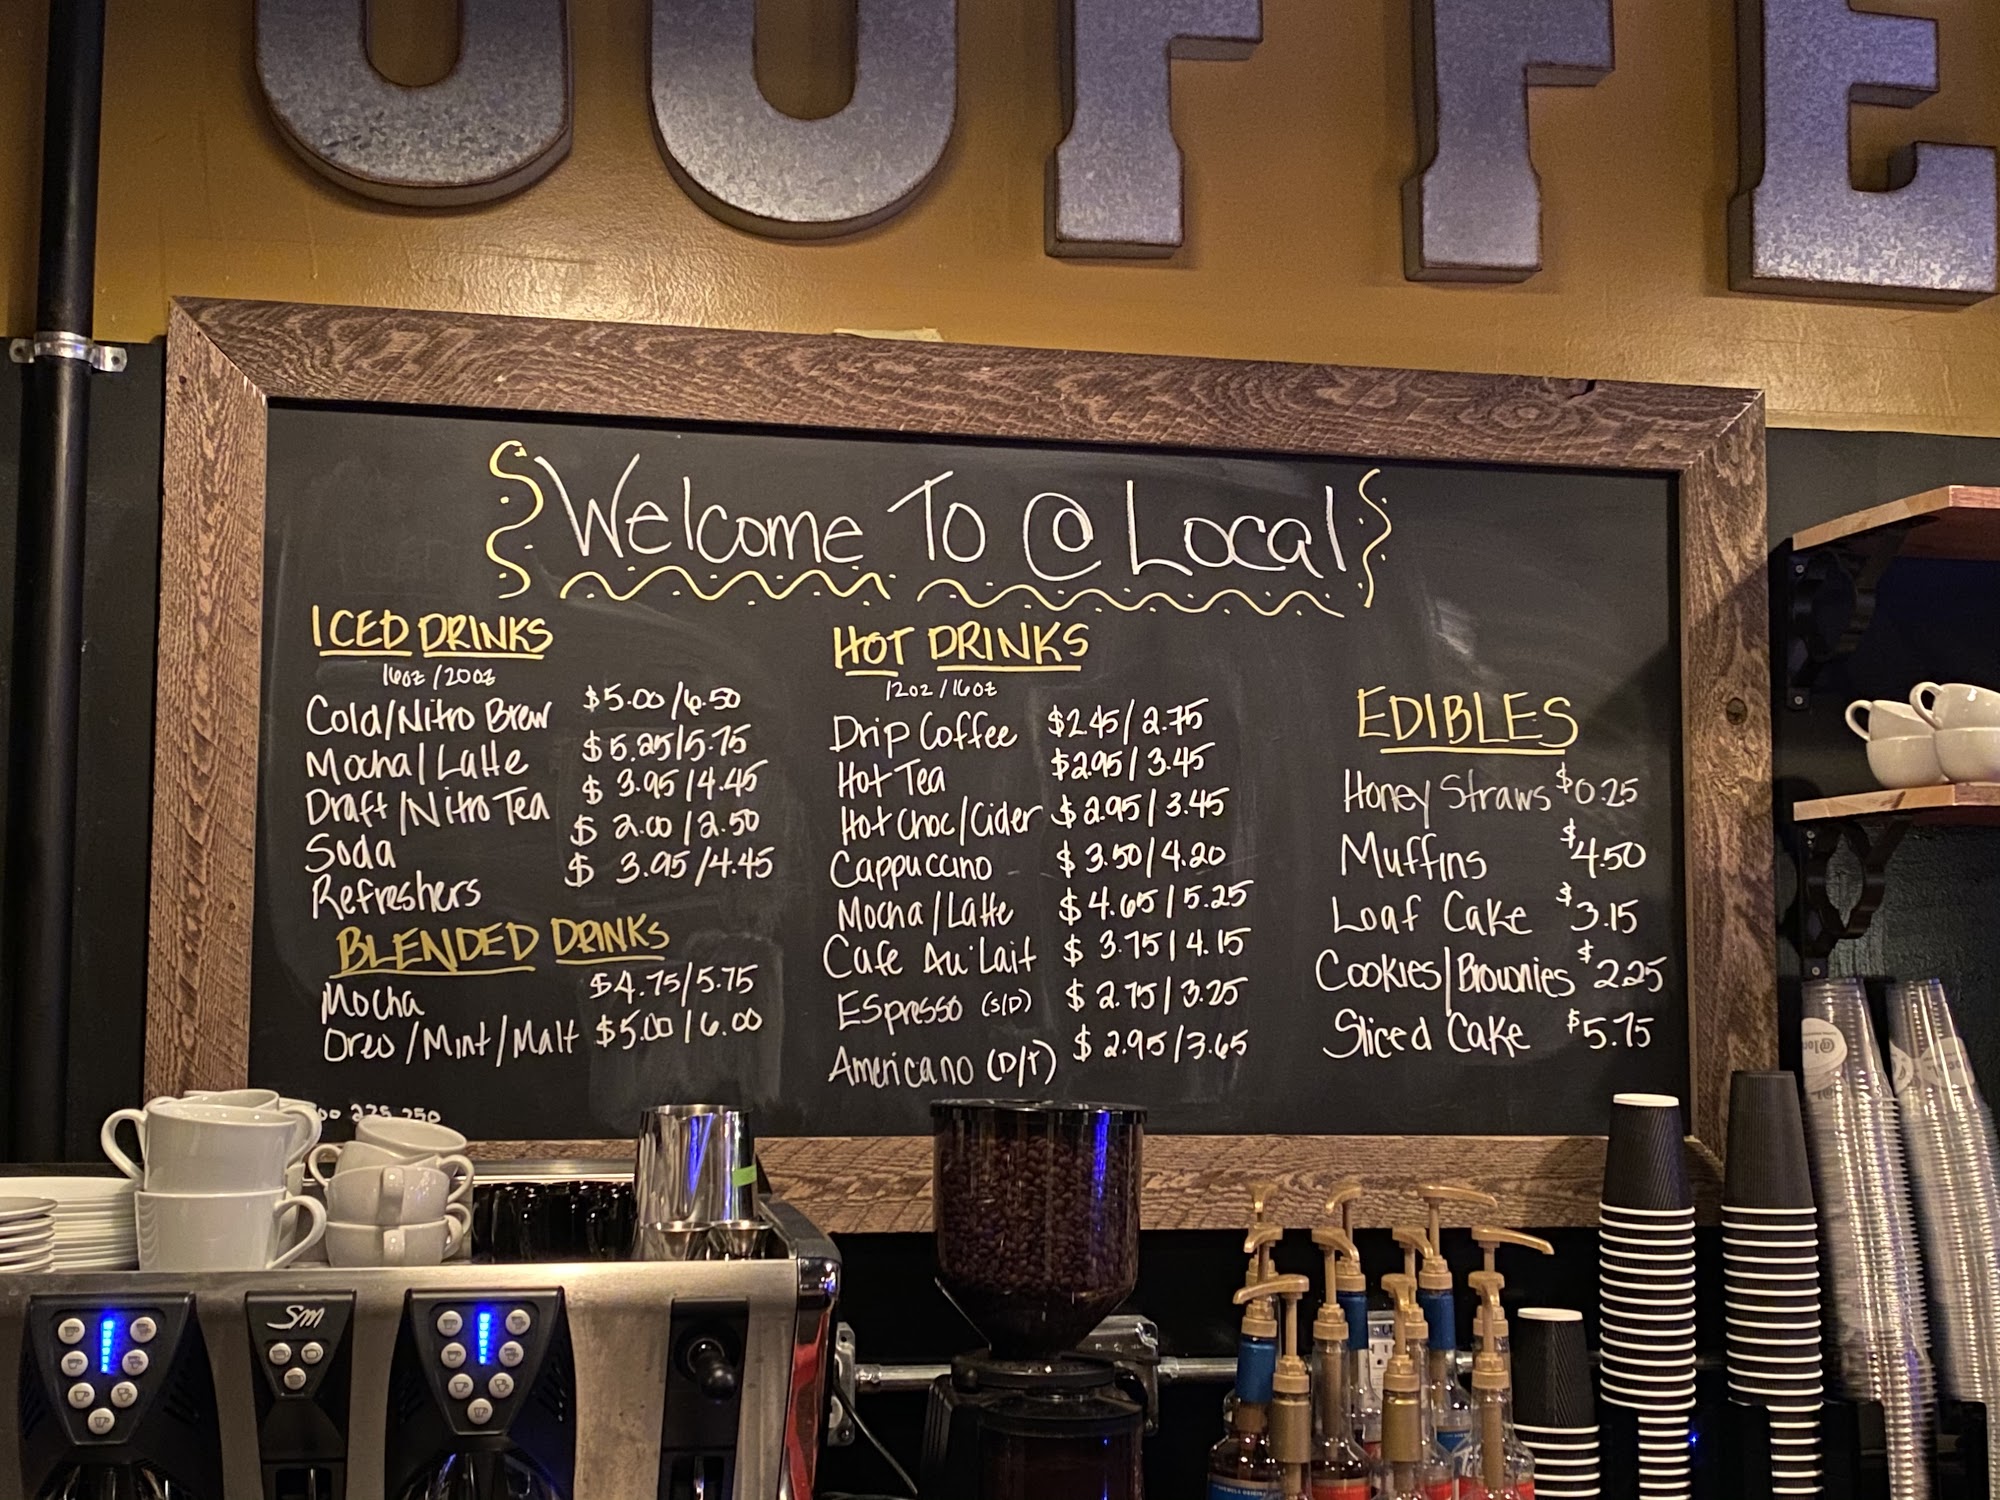 COFFE
{Welcome To @ Local}
ICED DRINKS
16oz / 20oz
Cold/Nitro Brew $5.00/6.50
Mocha/Latte $5.25/5.75
Draft/Nitro Tea $3.95/4.45
Soda $2.00/2.50
Refreshers $3.95/4.45
BLENDED DRINKS
Mocha $4.75/5.75
Oreo/Mint/Malt $5.00/6.00
HOT DRINKS
12oz / 16oz
Drip Coffee $2.45/2.75
Hot Tea $2.95/3.45
Hot Choc/Cider $2.95/3.45
Cappuccino $3.50/4.20
Mocha/Latte $4.65/5.25
Cafe Au' Lait $3.75/4.15
Espresso (S/D) $2.75/3.25
Americano (D/T) $2.95/3.65
EDIBLES
Honey Straws $0.25
Muffins $4.50
Loaf Cake $3.15
Cookies/Brownies $2.25
Sliced Cake $5.75
SM